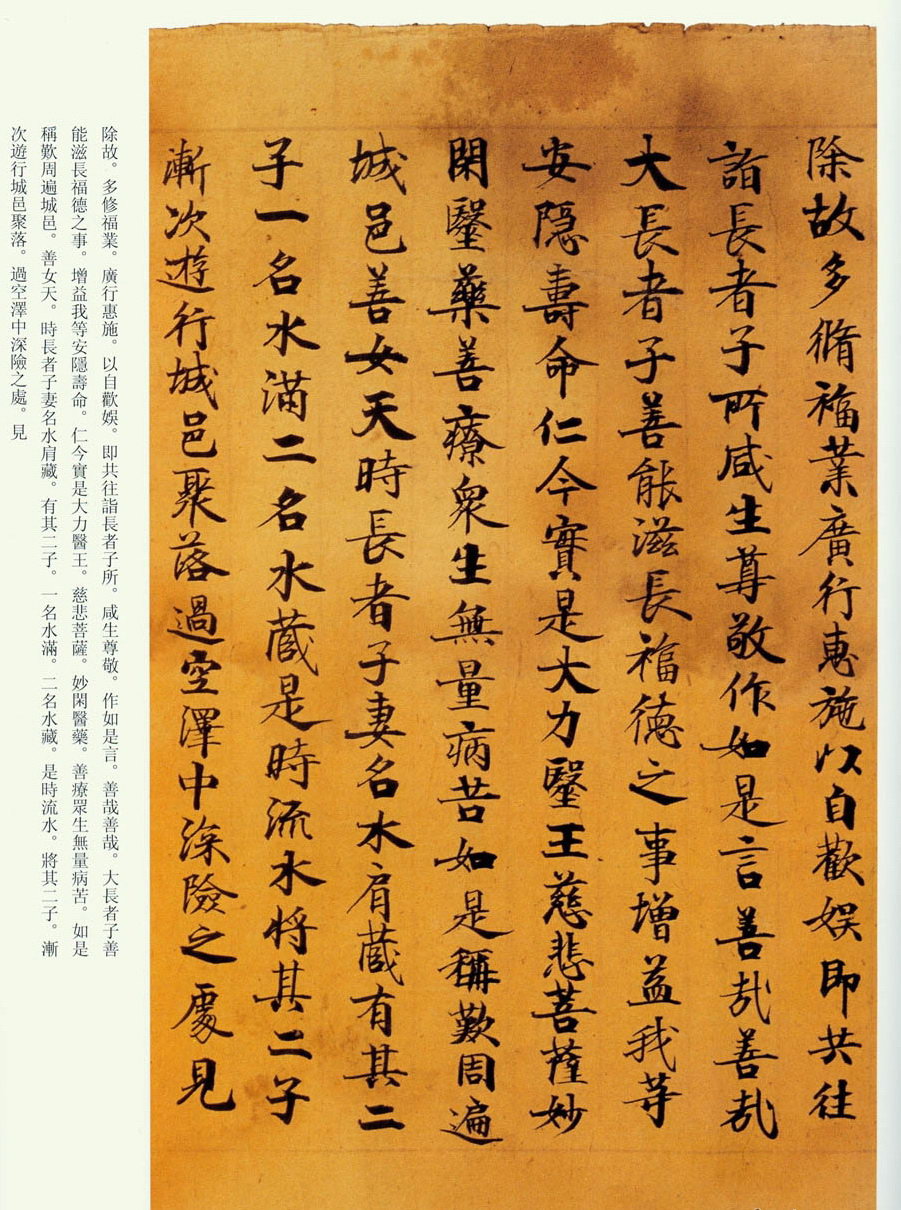 除故多脩福業廣行惠施以自歡娛即共往
詣長者子所咸生尊敬作如是言善哉善哉
大長者子善能滋長福德之事增益我等
安隱壽命仁今實是大力醫王慈悲菩薩妙
閑醫藥善療眾生無量病苦如是稱歎周遍
城邑善女天時長者子妻名水肩藏有其二
子一名水滿二名水藏是時流水將其二子
漸次遊行城邑聚落過空澤中深險之處見
除故。多修福業。廣行惠施。以自歡娛。即共往詣長者子所。咸生尊敬。作如是言。善哉善哉。大長者子善
能滋長福德之事。增益我等安隱壽命。仁今實是大力醫王。慈悲菩薩。妙閑醫藥。善療眾生無量病苦。如是
稱歎周遍城邑。善女天。時長者子妻名水肩藏。有其二子。一名水滿。二名水藏。是時流水。將其二子。漸
次遊行城邑聚落。過空澤中深險之處。見